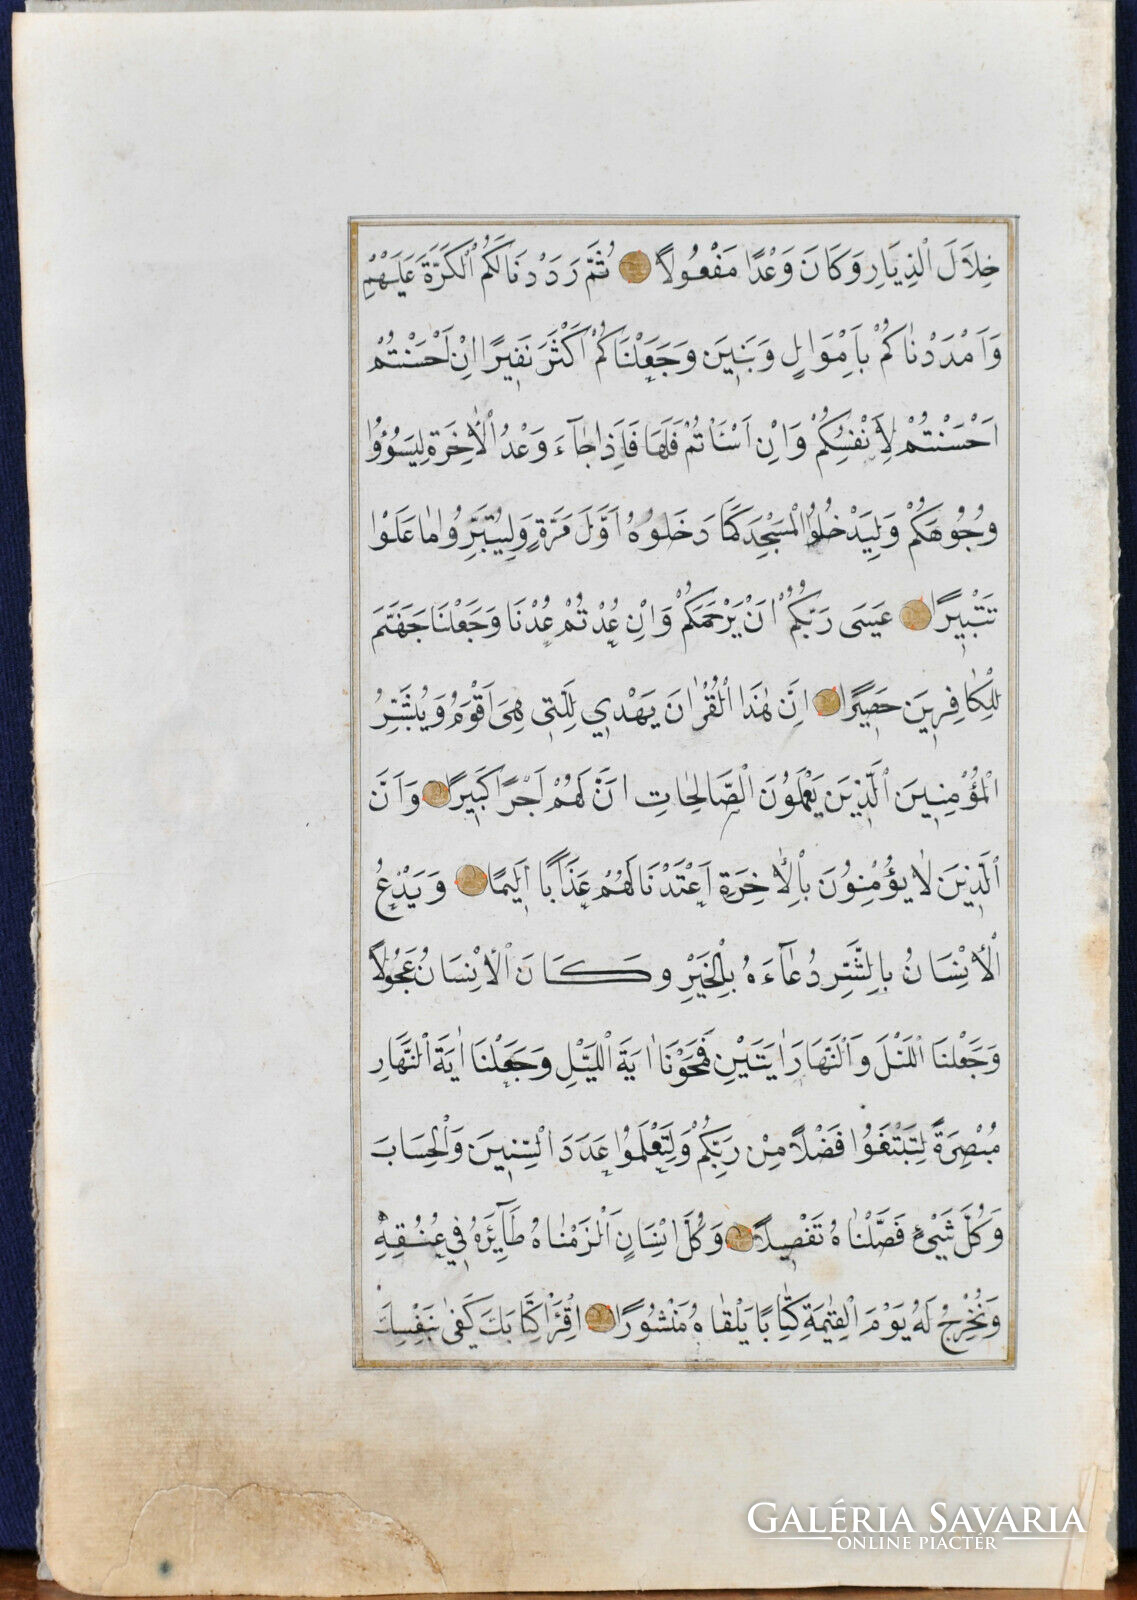 خِلَالَ الدِّيَارِ وَكَانَ وَعْدًا مَفْعُولًا ثُمَّ رَدَدْنَا لَكُمُ الْكَرَّةَ عَلَيْهِمْ
وَاَمْدَدْنَاكُمْ بِاَمْوَالٍ وَبَنِينَ وَجَعَلْنَاكُمْ اَكْثَرَ نَفِيرًا اِنْ اَحْسَنْتُمْ
اَحْسَنْتُمْ لِاَنْفُسِكُمْ وَاِنْ اَسَاْتُمْ فَلَهَا فَاِذَا جَاۤءَ وَعْدُ الْاٰخِرَةِ لِيَسُوۤؤُا
وُجُوهَكُمْ وَلِيَدْخُلُوا الْمَسْجِدَ كَمَا دَخَلُوهُ اَوَّلَ مَرَّةٍ وَلِيُتَبِّرُوا مَا عَلَوْا
تَتْبِيرًا عَسَى رَبُّكُمْ اَنْ يَرْحَمَكُمْ وَاِنْ عُدْتُمْ عُدْنَا وَجَعَلْنَا جَهَنَّمَ
لِلْكَافِرِينَ حَصِيرًا اِنَّ هٰذَا الْقُرْاٰنَ يَهْدِي لِلَّتِي هِيَ اَقْوَمُ وَيُبَشِّرُ
الْمُؤْمِنِينَ الَّذِينَ يَعْمَلُونَ الصَّالِحَاتِ اَنَّ لَهُمْ اَجْرًا كَبِيرًا وَاَنَّ
الَّذِينَ لَا يُؤْمِنُونَ بِالْاٰخِرَةِ اَعْتَدْنَا لَهُمْ عَذَابًا اَلِيمًا وَيَدْعُ
الْاِنْسَانُ بِالشَّرِّ دُعَاۤءَهُ بِالْخَيْرِ وَكَانَ الْاِنْسَانُ عَجُولًا
وَجَعَلْنَا اللَّيْلَ وَالنَّهَارَ اٰيَتَيْنِ فَمَحَوْنَا اٰيَةَ اللَّيْلِ وَجَعَلْنَا اٰيَةَ النَّهَارِ
مُبْصِرَةً لِتَبْتَغُوا فَضْلًا مِنْ رَبِّكُمْ وَلِتَعْلَمُوا عَدَدَ السِّنِينَ وَالْحِسَابَ
وَكُلَّ شَيْءٍ فَصَّلْنَاهُ تَفْصِيلًا وَكُلَّ اِنْسَانٍ اَلْزَمْنَاهُ طَاۤئِرَهُ فِي عُنُقِهِ
وَنُخْرِجُ لَهُ يَوْمَ الْقِيٰمَةِ كِتَابًا يَلْقَاهُ مَنْشُورًا اِقْرَاْ كِتَابَكَ كَفٰى بِنَفْسِكَ
GALÉRIA SAVARIA
ONLINE PIACTÉR